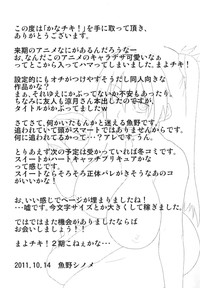 この度は「かなチキ！」を手に取って頂き、
ありがとうございます。
来期のアニメなにがあるんだろうなー
お、なんだこのアニメのキャラデザ可愛いなぁ
ってとこから入ってハマってしまいました、まよチキ！
設定的にもオチがつけやすそうだし同人向きな
作品かな？と。
まぁ、それゆえにかぶってないか不安もあったり、
ちなみに友人も涼月さん本出したのですが、
タイトルがかぶってましたｗ
さて、何かいたもんかと迷える魚野です。
追われていて頭がスマートではありませんからです。
何に追われてるかって…？アレですし、うん。
とりあえず次の予定は受かっていれば冬コミで、
スイートかハートキャッチプリキュアかな
って感じです。
スイートならそろそろ正体バレがきそうなのがコ
がいいかな！
お、いい感じでページが埋まりましたね！
え…嘘です、今回文字サイズとか大きくして稼ぎました。
ではではまた機会がありましたならば
お会いしましょう！！
まよチキ！２期こねぇかな…
2011.10.14　魚野シノメ